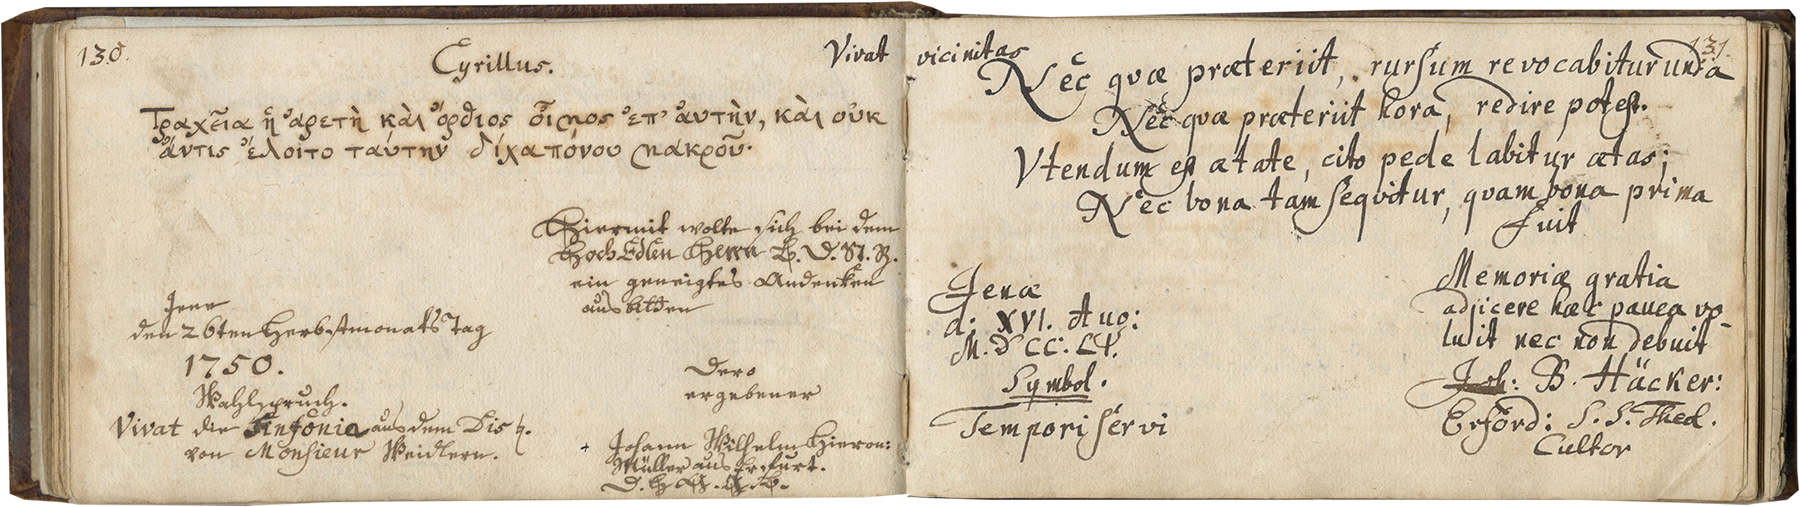 130.
Cyrillus.
Τραχεῖα ἡ ἀρετὴ καὶ ὄρθιος οἶμος ἐπ' ἀυτὴν, καὶ οὐκ
ἄντις ἕλοιτο ταύτην δίχα πόνου μακροῦ.
Hiermit wolte sich bei dem
HochEdlen Herrn
ein geneigtes Andenken
ausbitten
Jena
den 26ten Herbstmonats Tag
1750.
Wahlspruch.
Vivat die Sinfonie aus dem Dis
von Monsieur Weidlern.
Dero
ergebener
Johann Wilhelm Hieron:
Müller aus Erfurt.
Vivat vicinitas
131.
Nec quæ præteriit, rursum revocabitur unda
Nec quæ præteriit hora, redire potest.
Vtendum est ætate, cito pede labitur ætas;
Nec bona tam seqvitur, quam bona prima
fuit
Jenæ
d: XVI. Aug:
Symbol.
Tempori servi
Memoriæ gratia
adjicere hæc pauca vo-
luit nec non debuit
Joh: B. Häcker:
Erford: S. S. Theol.
Cultor